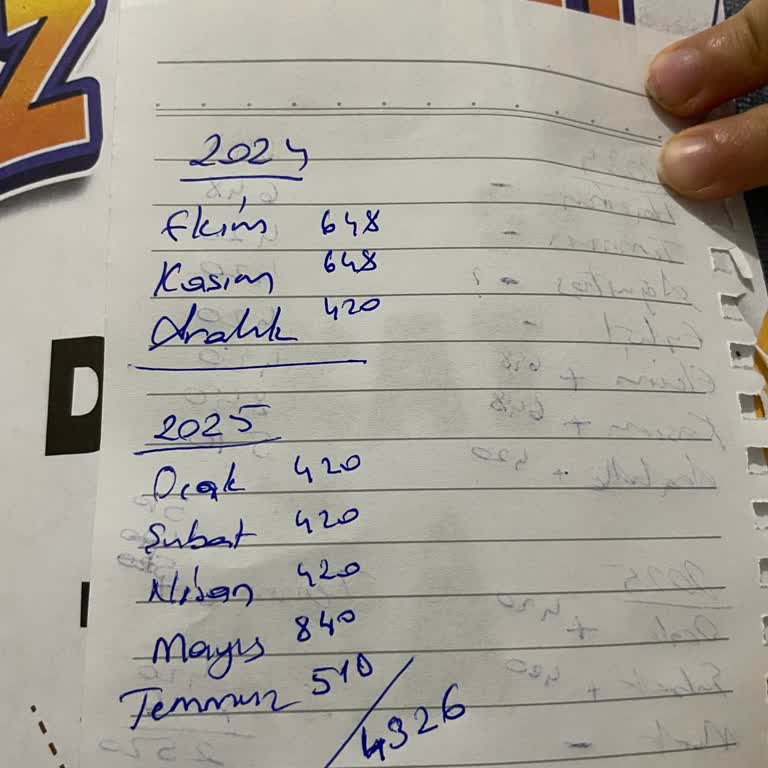 2024
Ekim 648
Kasım 648
Aralık 420
2025
Ocak 420
Şubat 420
Nisan 420
Mayıs 840
Temmuz 510
4326